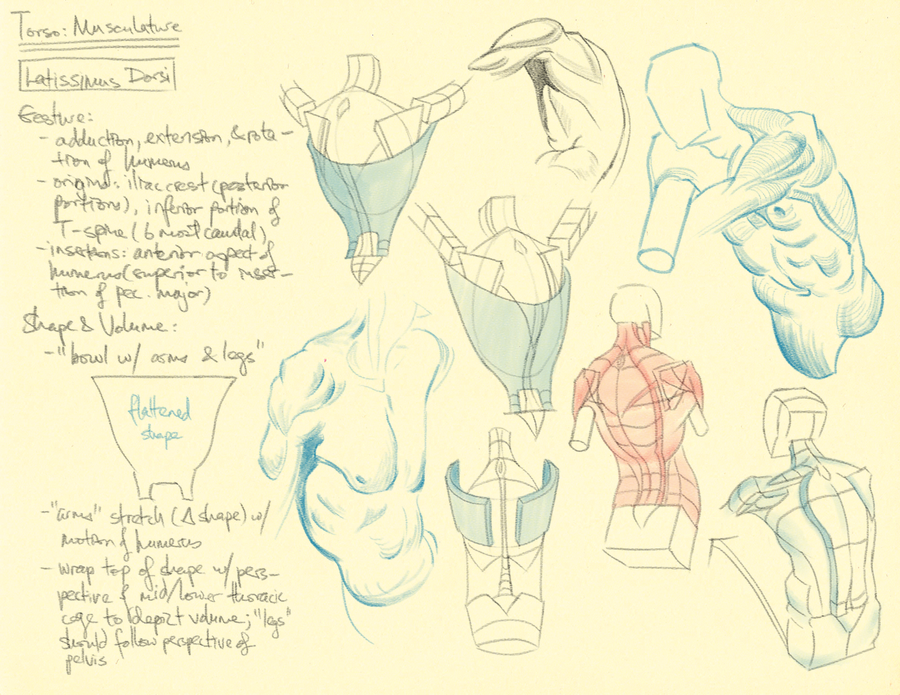 Torso: Musculature
Latissimus Dorsi
Gesture:
- adduction, extension, & rota-
tion of humerus
- origins: iliac crest (posterior
portions), inferior portion of
T-spine (6 most caudal)
- insertions: anterior aspect of
humerus (superior to inser-
tion of pec. major)
Shape & Volume:
- "bowl w/ arms & legs"
flattened
shape
- "arms" stretch (Δ shape) w/
motion of humerus
- wrap top of shape w/ pers-
pective of mid/lower thoracic
cage to depict volume; "legs"
should follow perspective of
pelvis